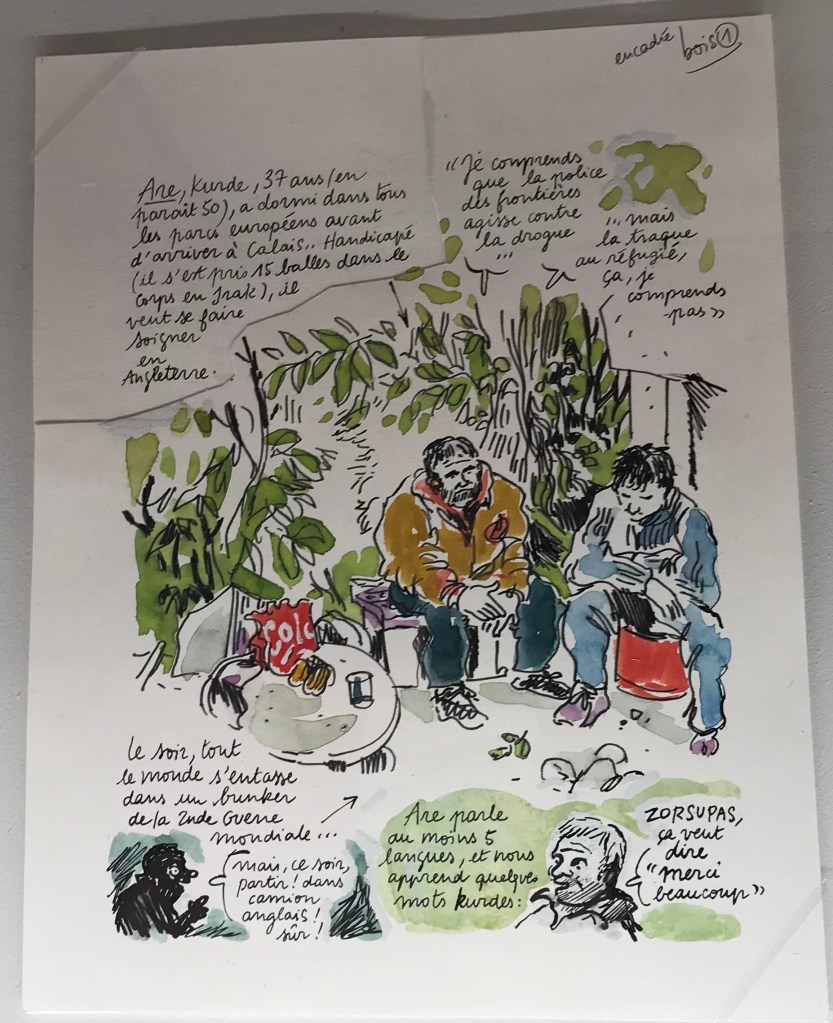 encadré bois ①
Are, Kurde, 37 ans (en
paraît 50), a dormi dans tous
les parcs européens avant
d'arriver à Calais.. Handicapé
(il s'est pris 15 balles dans le
corps en Irak), il
veut se faire
soigner
en
Angleterre.
"Je comprends
que la police
des frontières
agisse contre
la drogue
...
... mais
la traque
au réfugié,
ça, je
comprends
pas"
Le soir, tout
le monde s'entasse
dans un bunker
de la 2nde Guerre
mondiale...
mais, ce soir,
partir! dans
camion
anglais!
sûr!
Are parle
au moins 5
langues, et nous
apprend quelques
mots kurdes:
ZORSUPAS,
ça veut
dire
"merci
beaucoup"